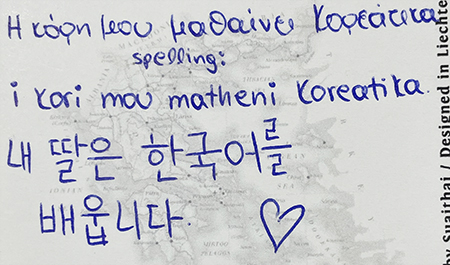 Η κόρη μου μαθαίνει Κορεάτικα
spelling:
i kori mou matheni Koreatika.
내 딸은 한국어를
배웁니다. ♡
by Suaithai / Designed in Liechte